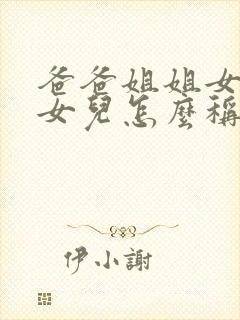 爸爸姐姐女
女兒怎麼稱
伊小謝